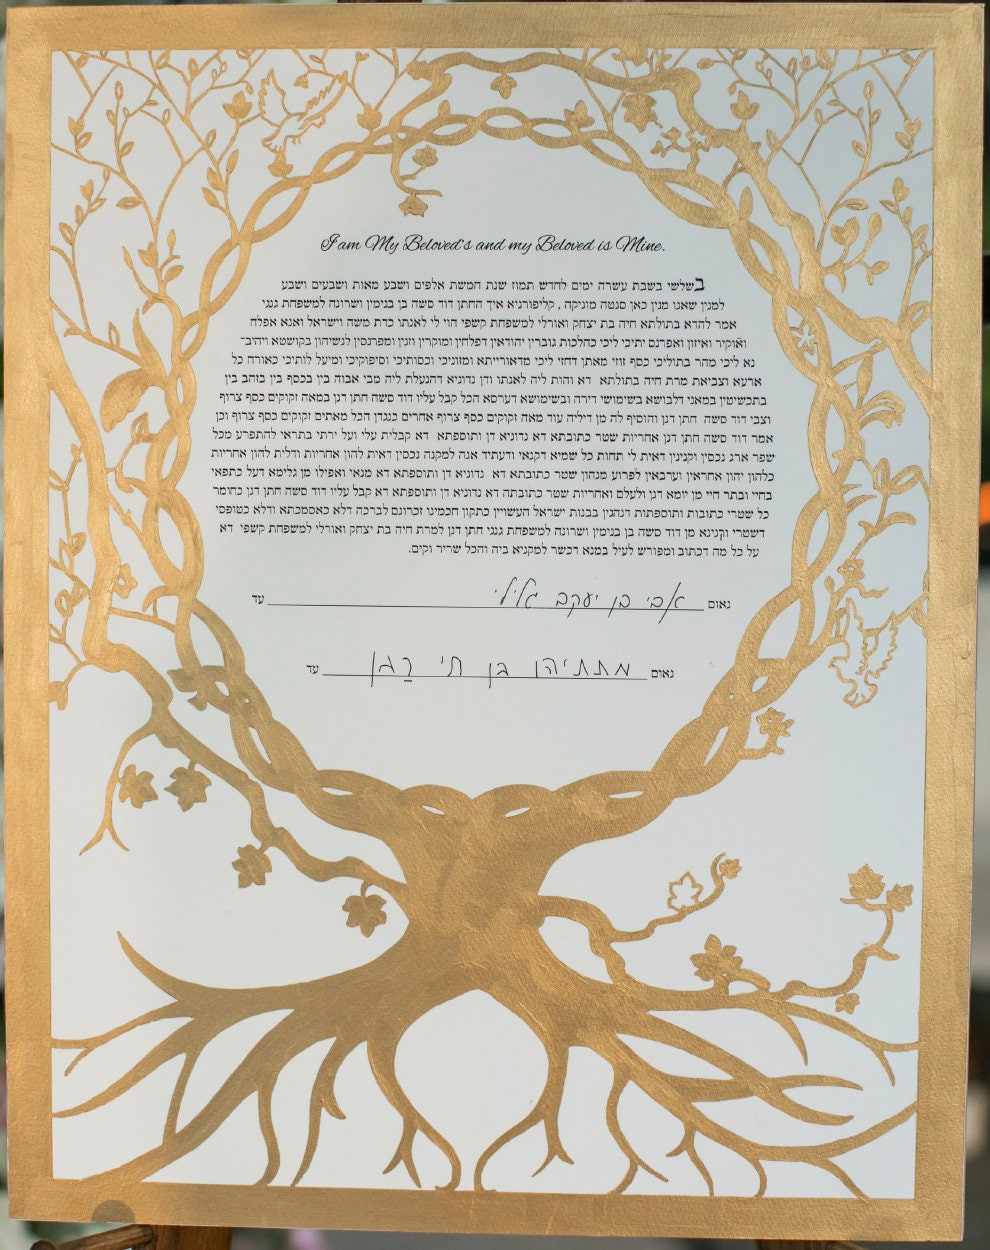 I am My Beloved's and my Beloved is Mine.
בשלשי בשבת עשרה ימים לחדש תמוז שנת חמשת אלפים ושבע מאות ושבעים ושבע
למנין שאנו מנין כאן סנטה מוניקה , קליפורניא איך החתן דוד סשה בן בנימין ושרונה למשפחת גנגי
אמר להדא בתולתא חיה בת יצחק ואורלי למשפחת קשפי הוי לי לאנתו כדת משה וישראל ואנא אפלח
ואוקיר ואיזון ואפרנס יתיכי ליכי כהלכות גוברין יהודאין דפלחין ומוקרין וזנין ומפרנסין לנשיהון בקושטא ויהיב־
נא ליכי מהר בתוליכי כסף זוזי מאתן דחזי ליכי מדאורייתא ומזוניכי וכסותיכי וסיפוקיכי ומיעל לותיכי כאורח כל
ארעא וצביאת מרת חיה בתולתא דא והות ליה לאנתו ודן נדוניא דהנעלת ליה מבי אבוה בין בכסף בין בזהב בין
בתכשיטין במאני דלבושא בשימושי דירה ובשימושא דערסא הכל קבל עליו דוד סשה חתן דנן במאה זקוקים כסף צרוף
וצבי דוד סשה חתן דנן והוסיף לה מן דיליה עוד מאה זקוקים כסף צרוף אחרים כנגדן הכל מאתים זקוקים כסף צרוף וכן
אמר דוד סשה חתן דנן אחריות שטר כתובתא דא נדוניא דן ותוספתא דא קבלית עלי ועל ירתי בתראי להתפרע מכל
שפר ארג נכסין וקנינין דאית לי תחות כל שמיא דקנאי ודעתיד אנה למקנה נכסין דאית להון אחריות ודלית להון אחריות
כלהון יהון אחראין וערבאין לפרוע מנהון שטר כתובתא דא נדוניא דן ותוספתא דא מנאי ואפילו מן גלימא דעל כתפאי
בחיי ובתר חיי מן יומא דנן ולעלם ואחריות שטר כתובתה דא נדוניא דן ותוספתא דא קבל עליו דוד סשה חתן דנן כחומר
כל שטרי כתובות ותוספתות דנהגין בבנות ישראל העשויין כתקון חכמינו זכרונם לברכה דלא כאסמכתא ודלא כטופסי
דשטרי וקנינא מן דוד סשה בן בנימין ושרונה למשפחת גנגי חתן דנן למרת חיה בת יצחק ואורלי למשפחת קשפי דא
על כל מה דכתוב ומפורש לעיל במנא דכשר למקניא ביה והכל שריר וקים.
נאום אבי בן יעקב גלילי עד
נאום מתתיהו בן חי רגן עד